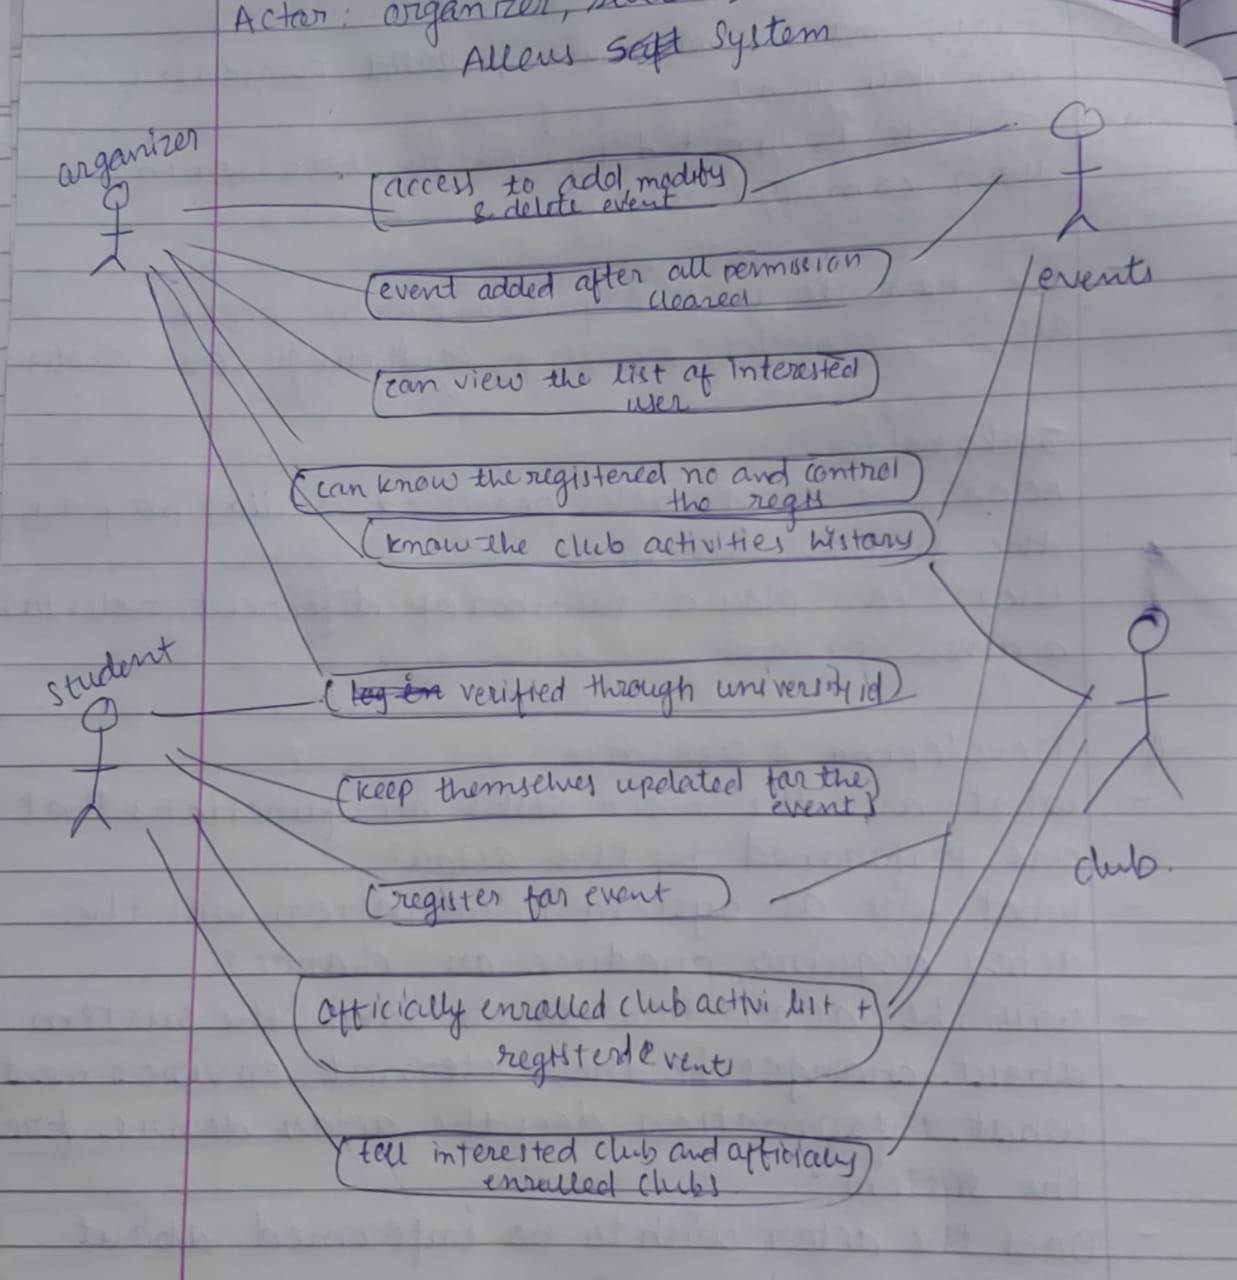 Actor: organizer,
Allens System
organizer
access to add, modify
& delete event
event added after all permission
cleared
events
can view the list of interested
user
can know the registered no and control
the regis
know the club activities history
student
log in verified through university id
keep themselves updated for the
event
club.
register for event
officially enrolled club activi list +
registerd event
tell interested club and officially
enrolled clubs